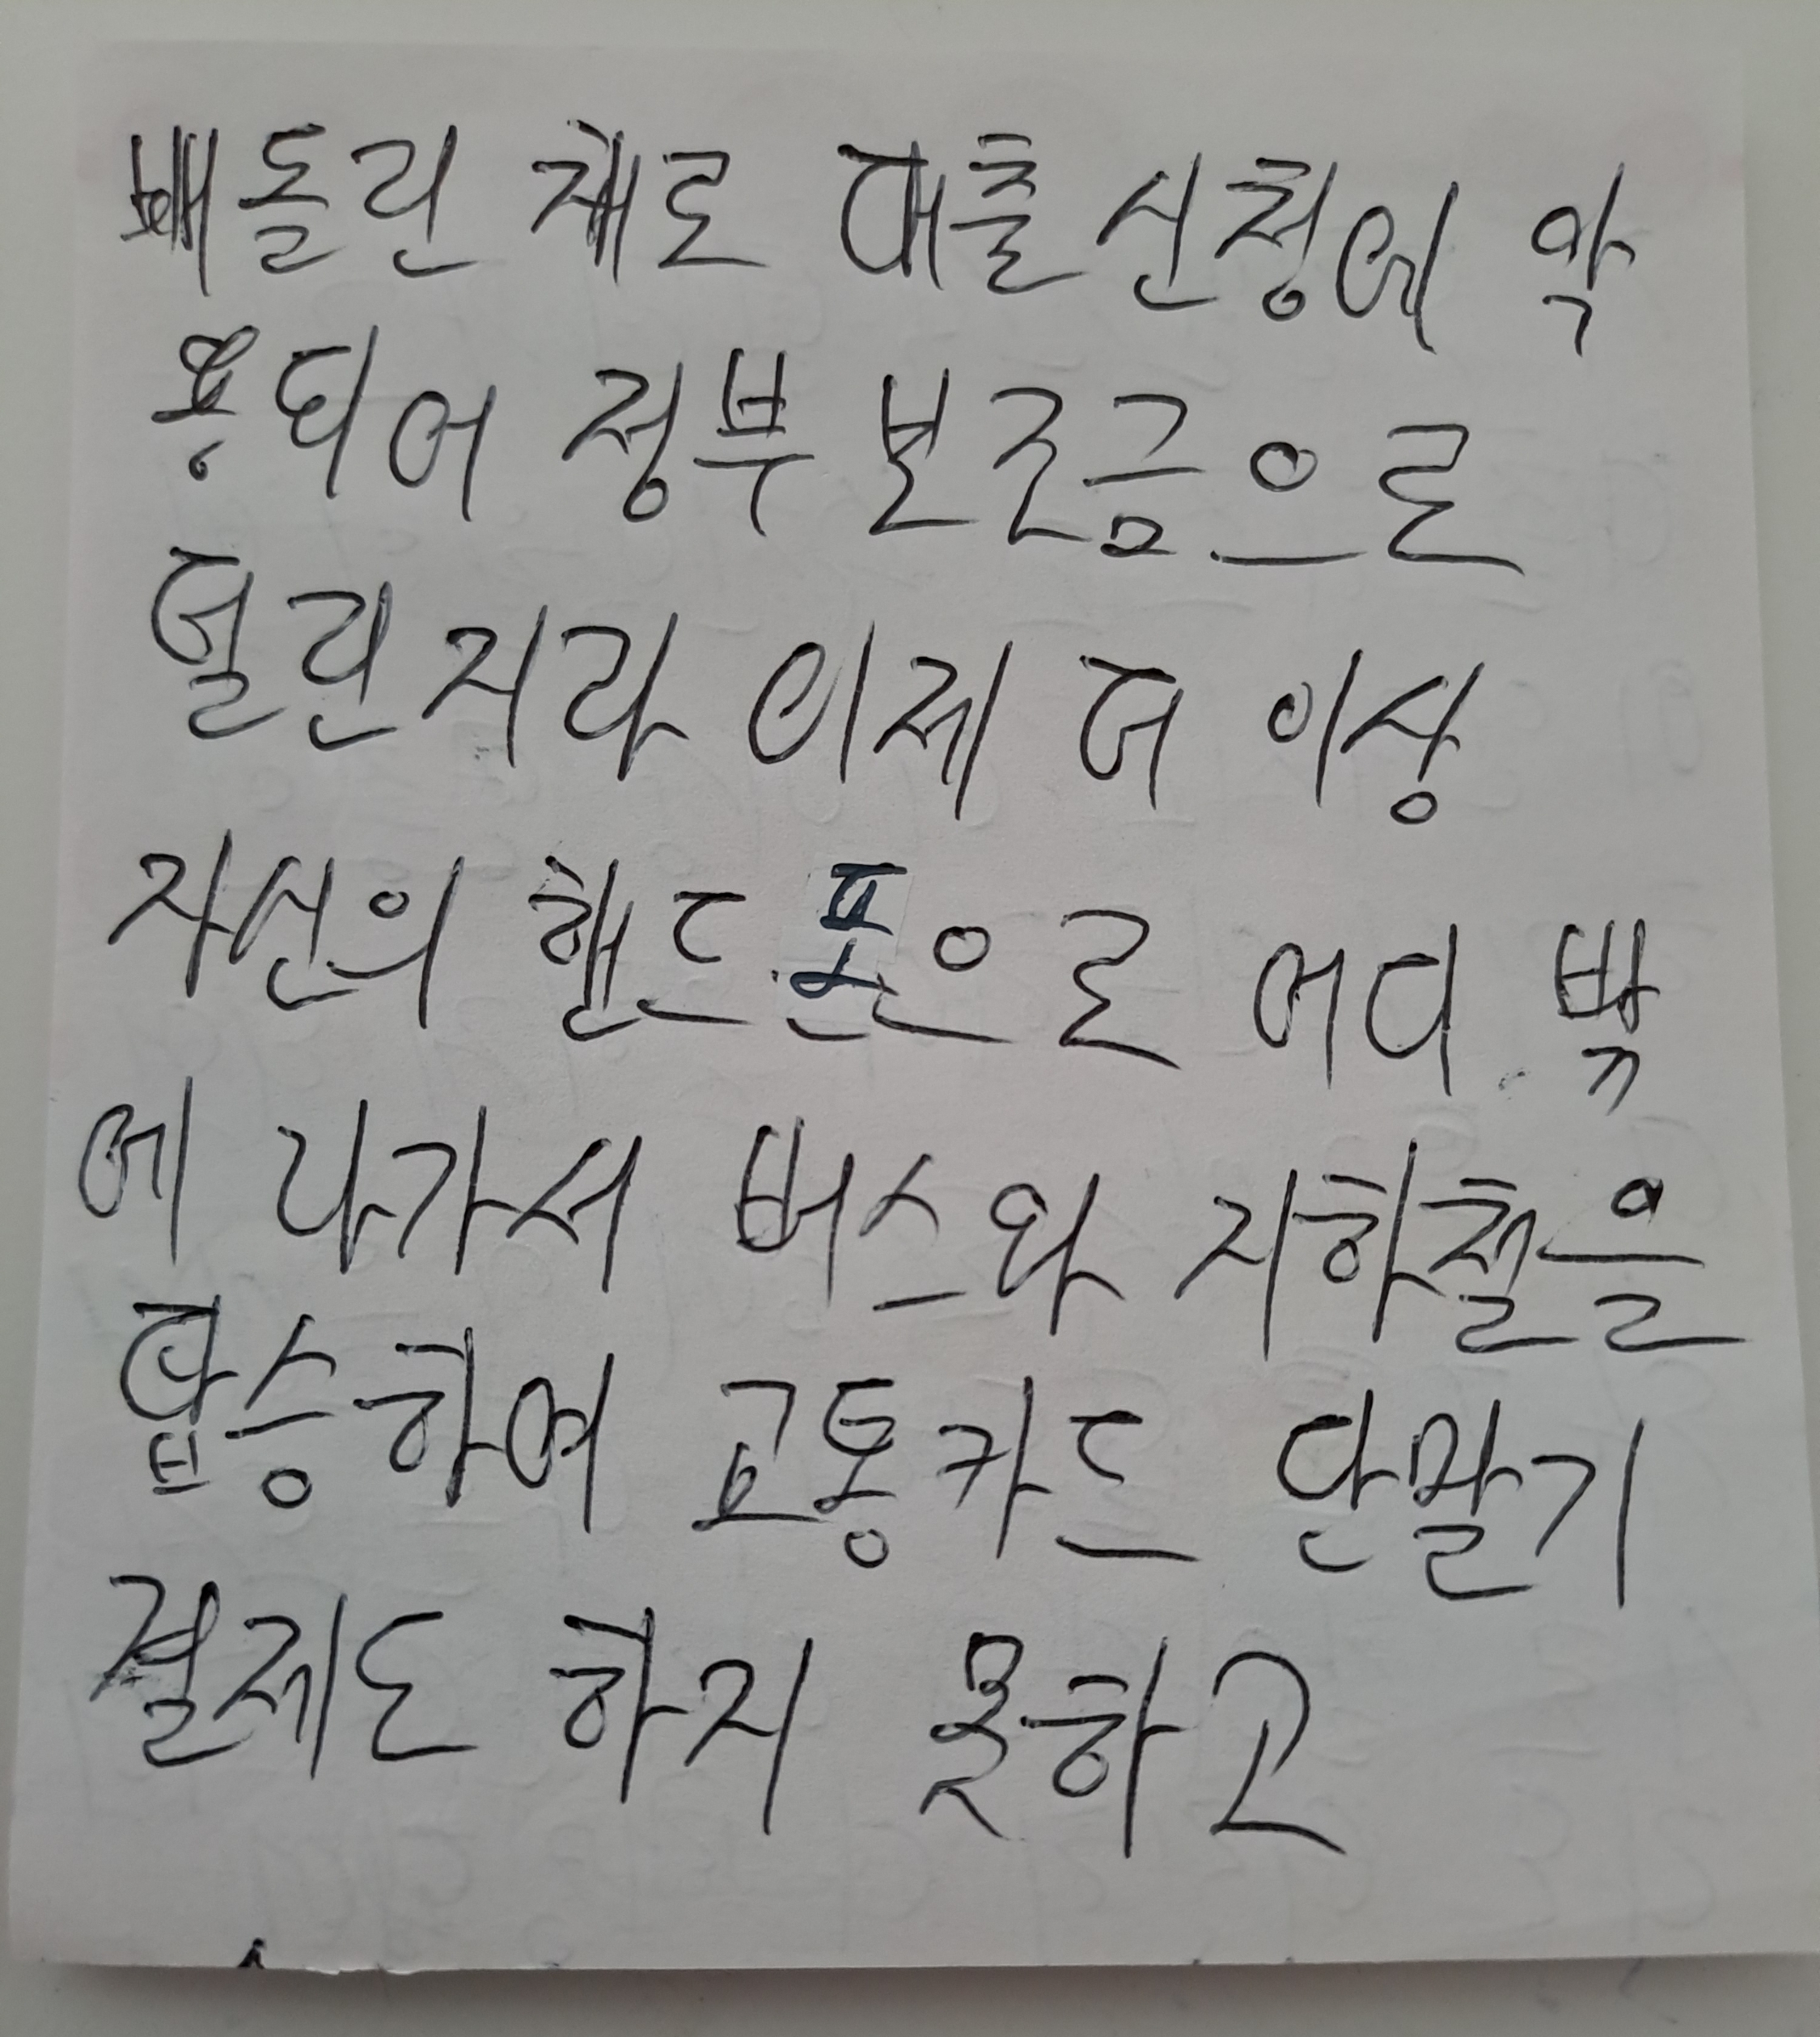 빼돌린 채로 대출신청에 악
용되어 정부 보조금으로
털린지라 이제 더 이상
자신의 핸드폰으로 어디 밖
에 나가서 버스와 지하철을
탑승하여 교통카드 단말기
결제도 하지 못하고